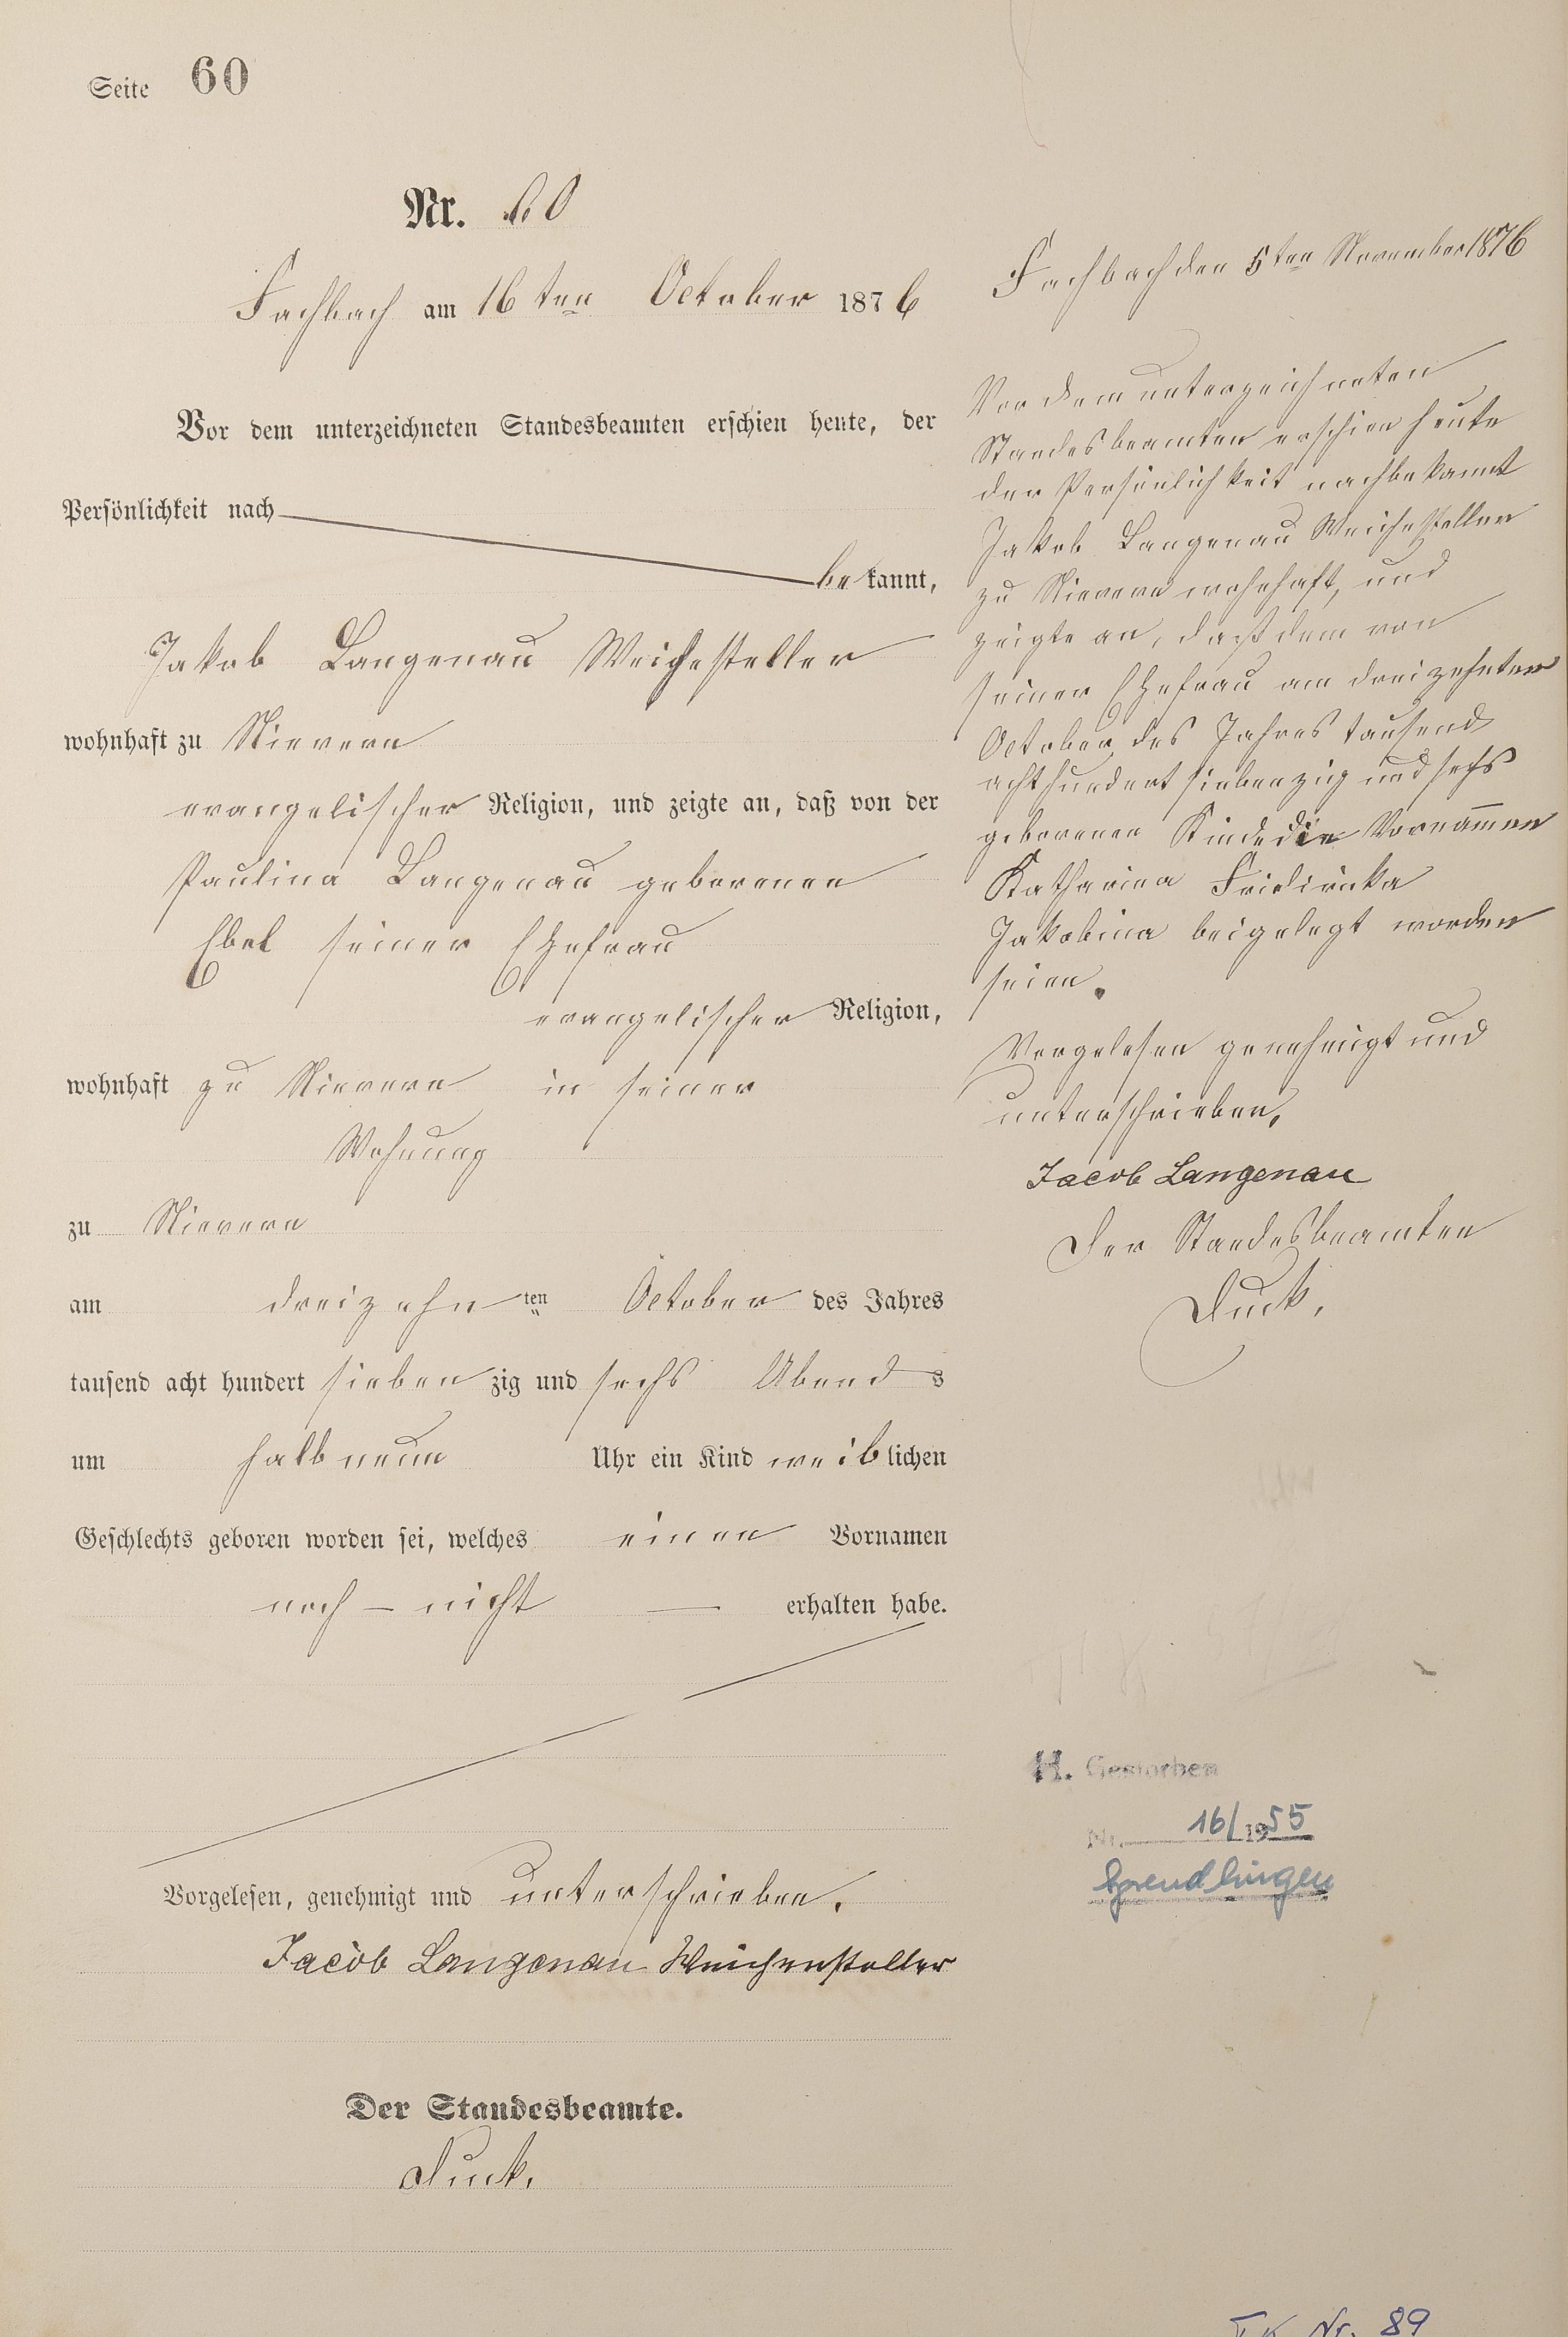 Seite 60
Nr. 60
Fachbach am 16ten October 1876
Vor dem unterzeichneten Standesbeamten erschien heute, der
Persönlichkeit nach
bekannt,
Jakob Langenau Weichesteller
wohnhaft zu Nievern
evangelischer Religion, und zeigte an, daß von der
Paulina Langenau geborenen
Ebel seiner Ehefrau
evangelischer Religion,
wohnhaft zu Nievern in seiner
Wohnung
zu Nievern
am dreizehnten October des Jahres
tausend acht hundert siebenzig und sechs Abends
um halb neun Uhr ein Kind weiblichen
Geschlechts geboren worden sei, welches einen Vornamen
noch – nicht — erhalten habe.
Vorgelesen, genehmigt und unterschrieben.
Jacob Langenau Weichensteller
Der Standesbeamte.
Duck.
Fachbach den 5ten November 1876
Vor dem unterzeichneten
Standesbeamten erschien heute
der Persönlichkeit nach bekannt
Jakob Langenau Weichesteller
zu Nievern wohnhaft, und
zeigte an, daß dem von
seiner Ehefrau am dreizehnten
October des Jahres tausend
achthundert siebenzig und sechs
geborenen Kinde die Vornamen
Katharina Fridirika
Jakobina beigelegt worden
seien.
Vorgelesen genehmigt und
unterschrieben.
Jacob Langenau
Der Standesbeamten
Duck.
H. Gestorben
Nr. 16/1955
Grendlingen
Nr. 89